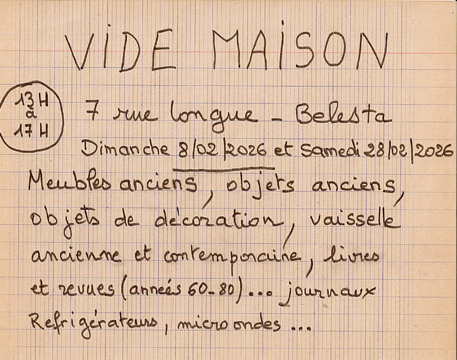 VIDE MAISON
13H
à
17H
7 rue longue - Belesta
Dimanche 8/02/2026 et Samedi 28/02/2026
Meubles anciens, objets anciens,
objets de décoration, vaisselle
ancienne et contemporaine, livres
et revues (années 60-80)... journaux
Refrigérateurs, micro ondes ...